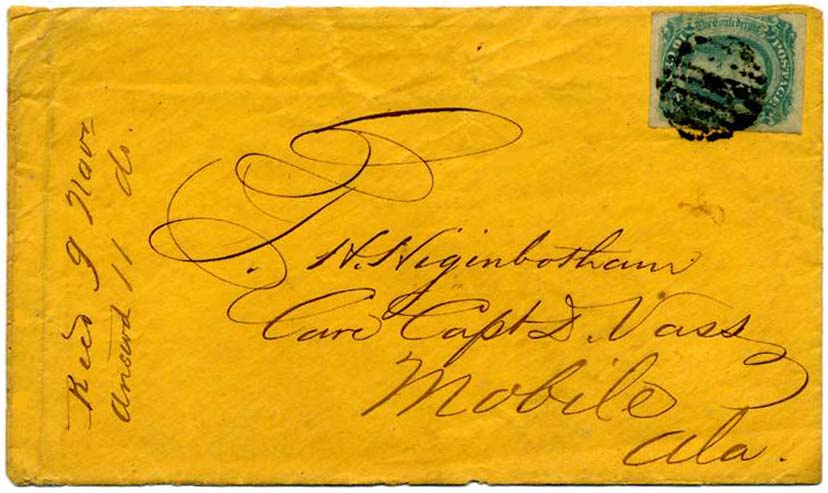 T. H. Higinbotham
Care Capt D. Vass
Mobile
Ala.
Recd 9 Nov
answd 11 do.
POSTAGE